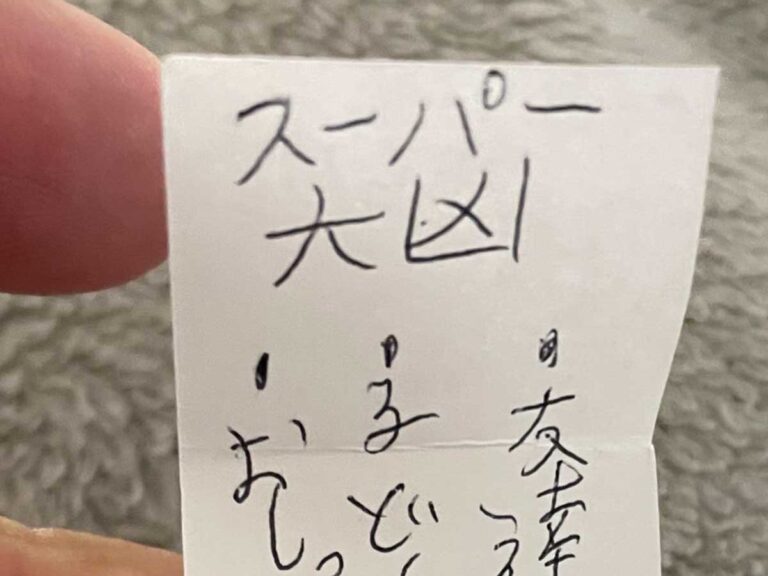 スーパー
大凶
・友達
・子ど
・おし